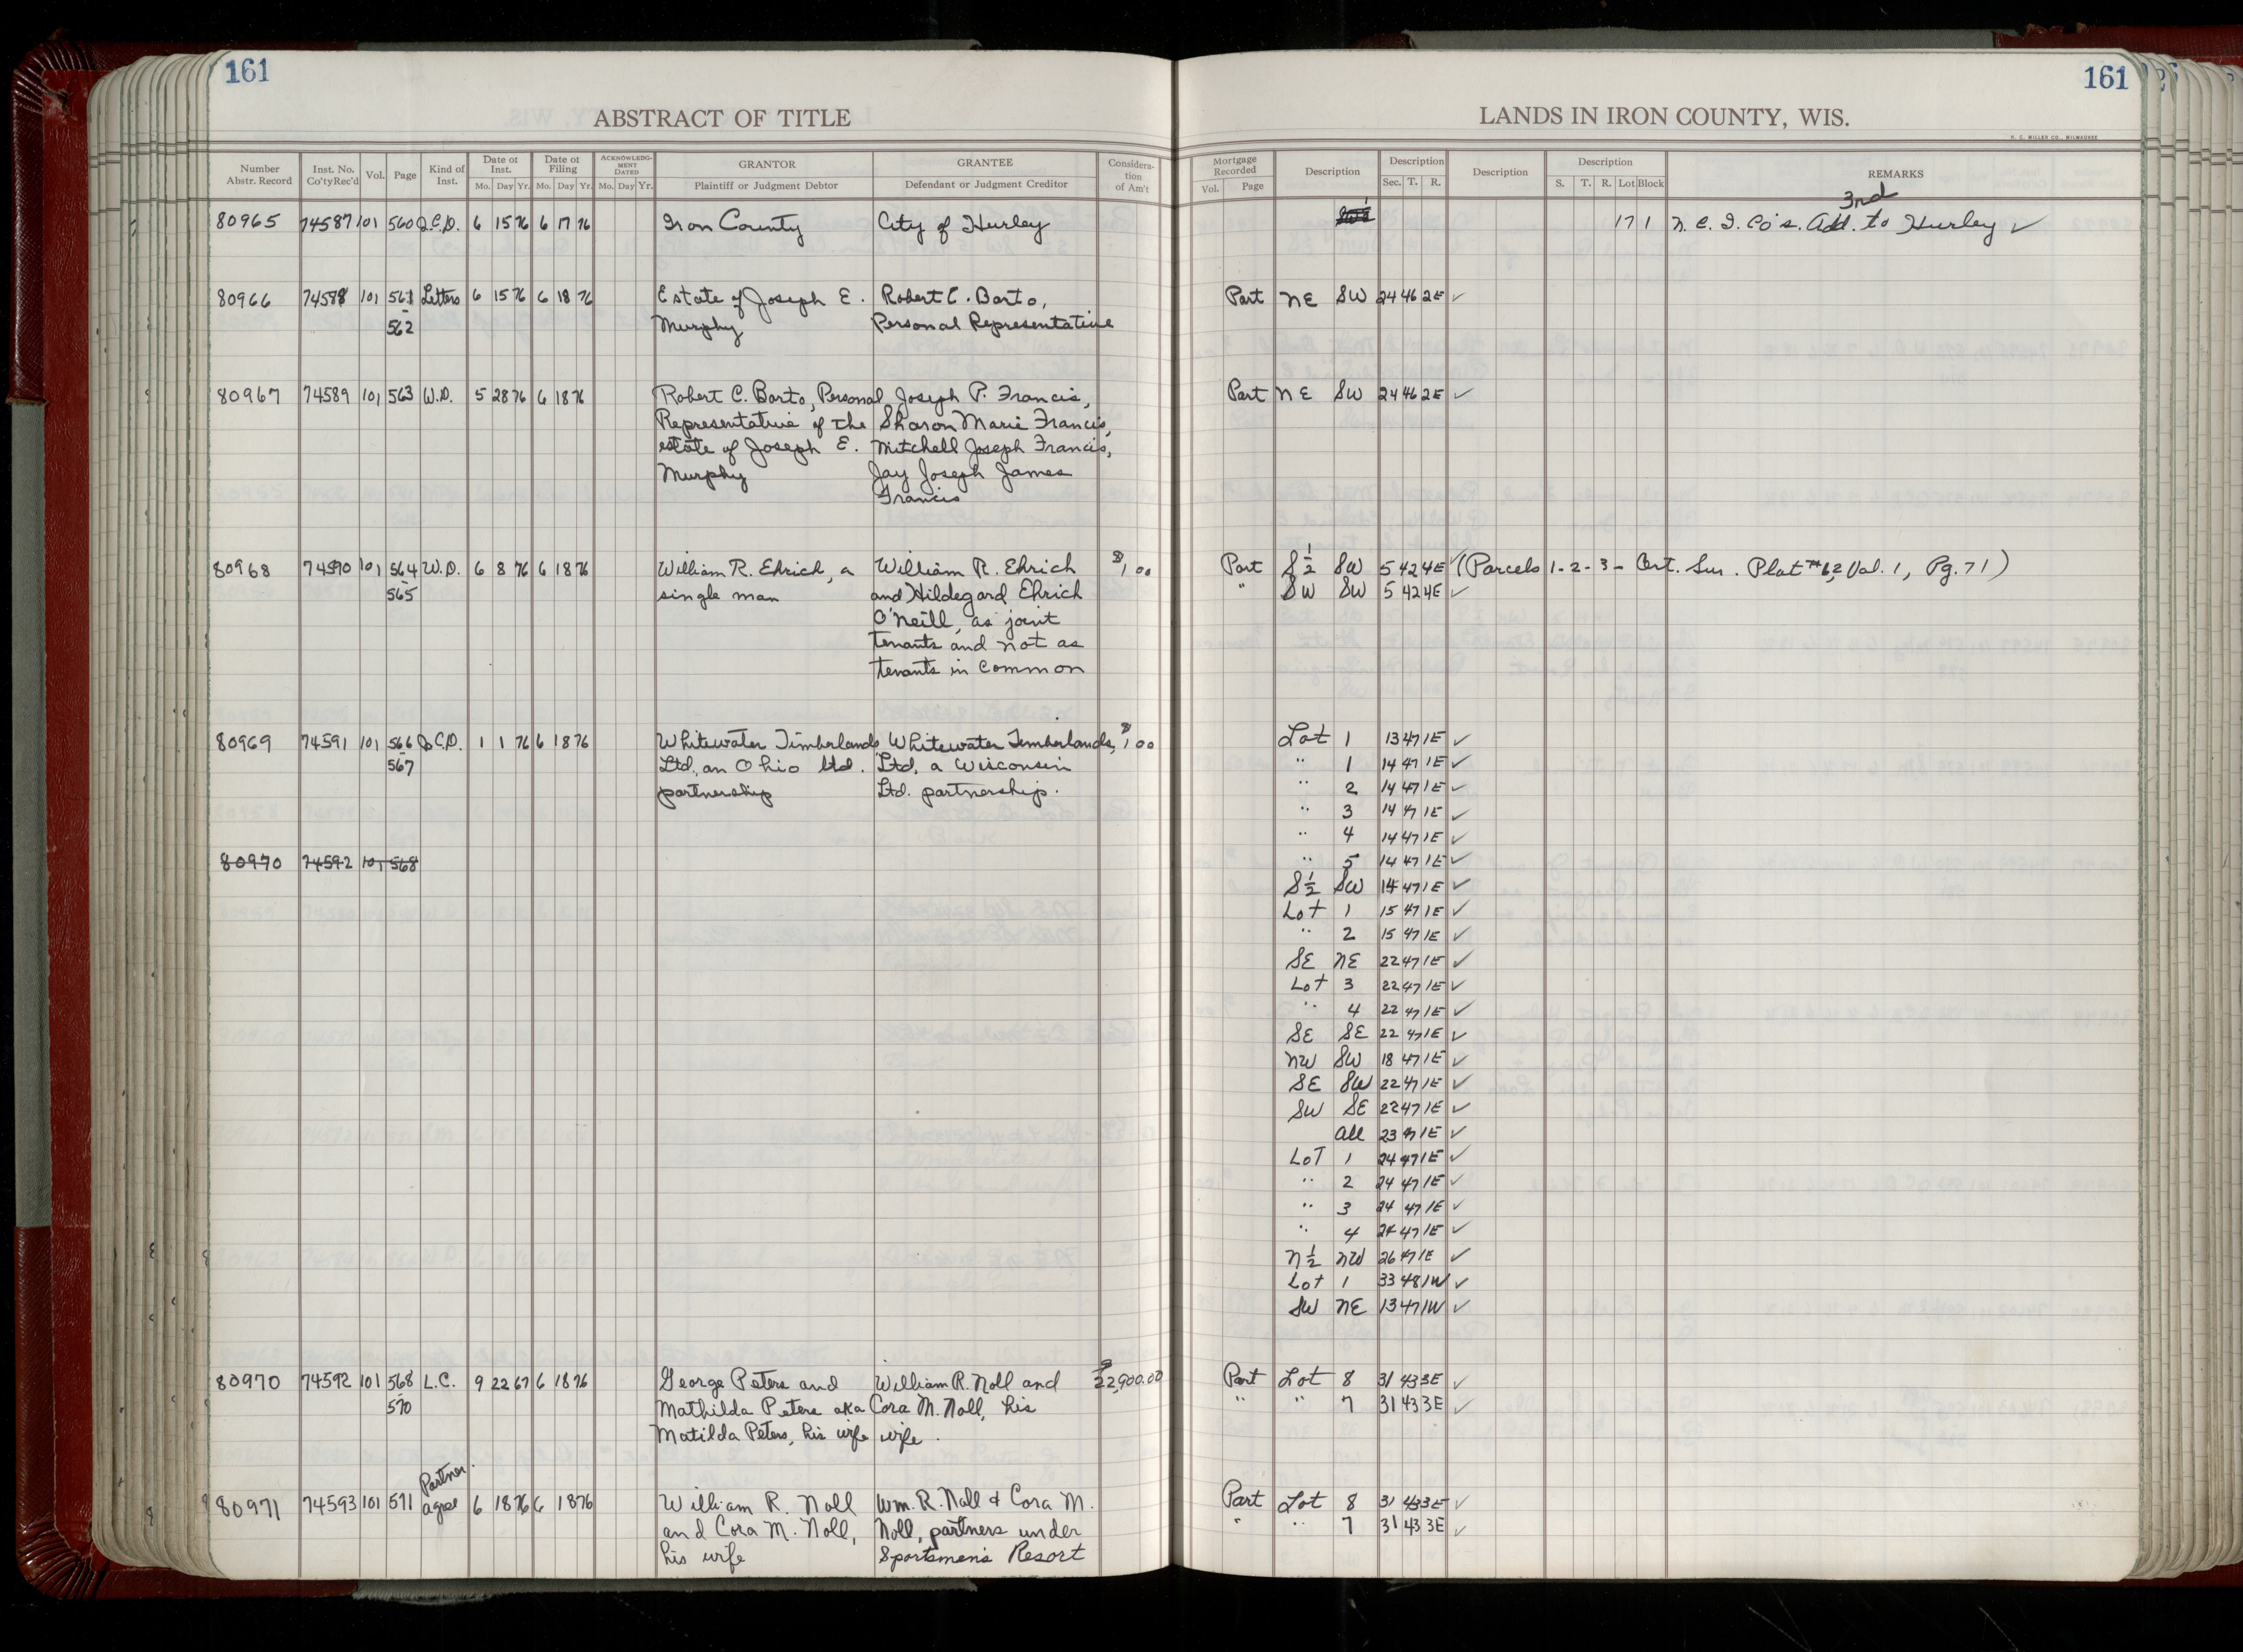 161
ABSTRACT OF TITLE
Number Abstr. Record
Inst. No. Co'ty Rec'd
Vol.
Page
Kind of Inst.
Date of Inst. Mo. Day Yr.
Date of Filing Mo. Day Yr.
ACKNOWLEDGMENT DATED Mo. Day Yr.
GRANTOR Plaintiff or Judgment Debtor
GRANTEE Defendant or Judgment Creditor
Consideration of Am't
80965 74587 101 560 Q.C.D. 6 15 76 6 17 76 Iron County City of Hurley
80966 74588 101 561 Letters 6 15 76 6 18 76 Estate of Joseph E. Robert C. Barto,
562 Murphy Personal Representative
80967 74589 101 563 W.D. 5 28 76 6 18 76 Robert C. Barto, Personal Joseph P. Francis,
Representative of the Sharon Marie Francis,
estate of Joseph E. Mitchell Joseph Francis,
Murphy Jay Joseph James
Francis
80968 74590 101 564 W.D. 6 8 76 6 18 76 William R. Ehrich, a William R. Ehrich $1.00
565 single man and Hildegard Ehrich
O'Neill, as joint
tenants and not as
tenants in common
80969 74591 101 566 Q.C.D. 1 1 76 6 18 76 Whitewater Timberlands Whitewater Timberlands, $1.00
567 Ltd., an Ohio ltd. Ltd, a Wisconsin
partnership Ltd. partnership.
80970 74592 101 568
80970 74592 101 568 L.C. 9 22 67 6 18 76 George Peters and William R. Noll and $22,900.00
570 Mathilda Peters aka Cora M. Noll, his
Matilda Peters, his wife wife.
Partner.
80971 74593 101 571 agree 6 18 76 6 18 76 William R. Noll Wm. R. Noll & Cora M.
and Cora M. Noll, Noll, partners under
his wife Sportsmen's Resort
161
LANDS IN IRON COUNTY, WIS.
H. C. MILLER CO., MILWAUKEE
Mortgage Recorded Vol. Page
Description
Description Sec. T. R.
Description
Description S. T. R. Lot Block
REMARKS
3rd
17 1 N. C. I. Co's. Add. to Hurley ✓
Part NE SW 24 46 2E ✓
Part NE SW 24 46 2E ✓
Part S½ SW 5 42 4E ✓ (Parcels 1-2-3- Cert. Sur. Plat #62, Vol. 1, Pg. 71)
" SW SW 5 42 4E ✓
Lot 1 13 47 1E ✓
" 1 14 47 1E ✓
" 2 14 47 1E ✓
" 3 14 47 1E ✓
" 4 14 47 1E ✓
" 5 14 47 1E ✓
S½ SW 14 47 1E ✓
Lot 1 15 47 1E ✓
" 2 15 47 1E ✓
SE NE 22 47 1E ✓
Lot 3 22 47 1E ✓
" 4 22 47 1E ✓
SE SE 22 47 1E ✓
NW SW 18 47 1E ✓
SE SW 22 47 1E ✓
SW SE 22 47 1E ✓
All 23 47 1E ✓
Lot 1 24 47 1E ✓
" 2 24 47 1E ✓
" 3 24 47 1E ✓
" 4 24 47 1E ✓
N½ NW 26 47 1E ✓
Lot 1 33 48 1W ✓
SW NE 13 47 1W ✓
Part Lot 8 31 43 3E ✓
" " 7 31 43 3E ✓
Part Lot 8 31 43 3E ✓
" " 7 31 43 3E ✓